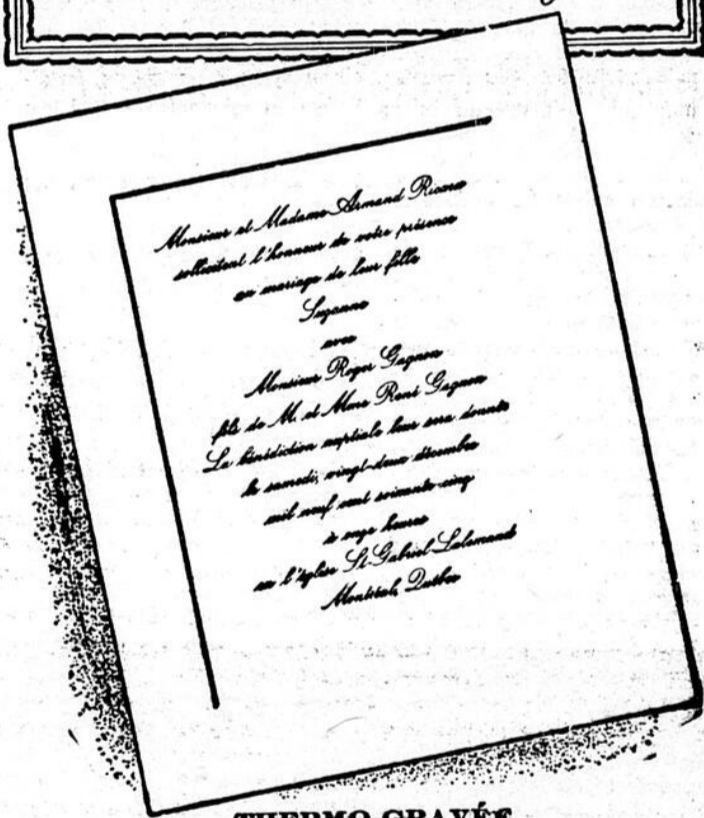 Monsieur et Madame Armand Ricard
sollicitent l'honneur de votre présence
au mariage de leur fille
Suzanne
avec
Monsieur Roger Gagnon
fils de M. et Mme René Gagnon
La bénédiction nuptiale leur sera donnée
le samedi, vingt-deux décembre
mil neuf cent soixante-cinq
à onze heures
en l'église St-Gabriel-Lalemand
Montréal, Québec
THERMO-GRAVÉE